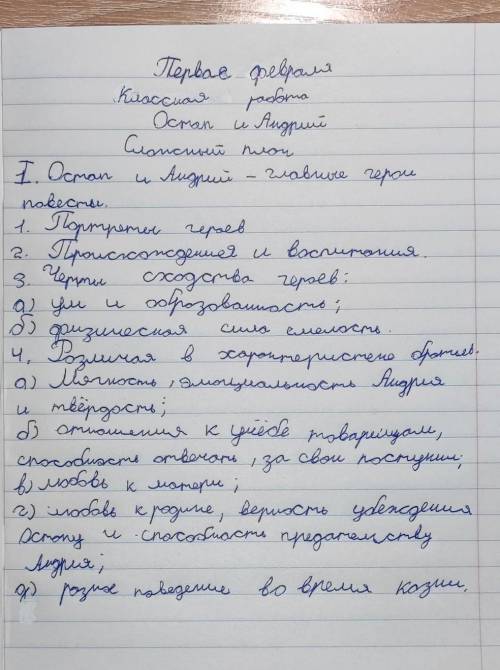 Первае февраля
Классная работа
Остап и Андрий
Сложный план
I. Остап и Андрий – главные герои
повесты.
1. Портреты героев
2. Происхождения и воспитания.
3. Черты сходства героев:
а) ум и образованность;
б) физическая сила смелость.
4. Розличая в характеристене братьев.
а) Мягкость, эмоциальность Андрия
и твёрдость;
б) отношения к учёбе товарищам,
способность отвечать, за свои поступки;
в) любовь к матери;
г) любовь к родине, верность убеждения
Остапу и способность предательству
Андрия;
д) разное поведение во время казни.